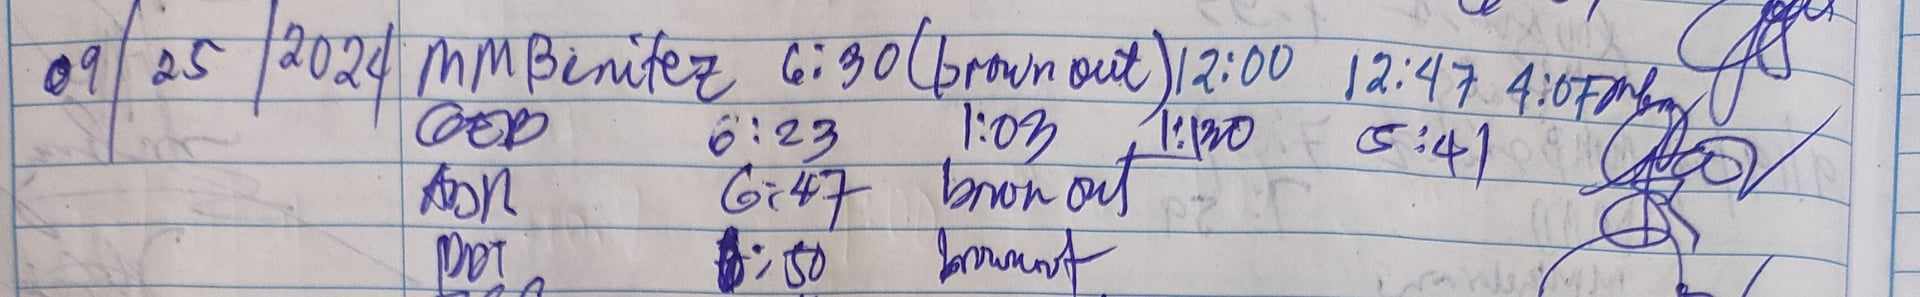 09/25/2024 MMBenitez 6:30 (brown out) 12:00 12:47 4:07
GEB 6:23 1:03 1:130 5:41
ADR 6:47 brion out
DDT 6:50 brownout